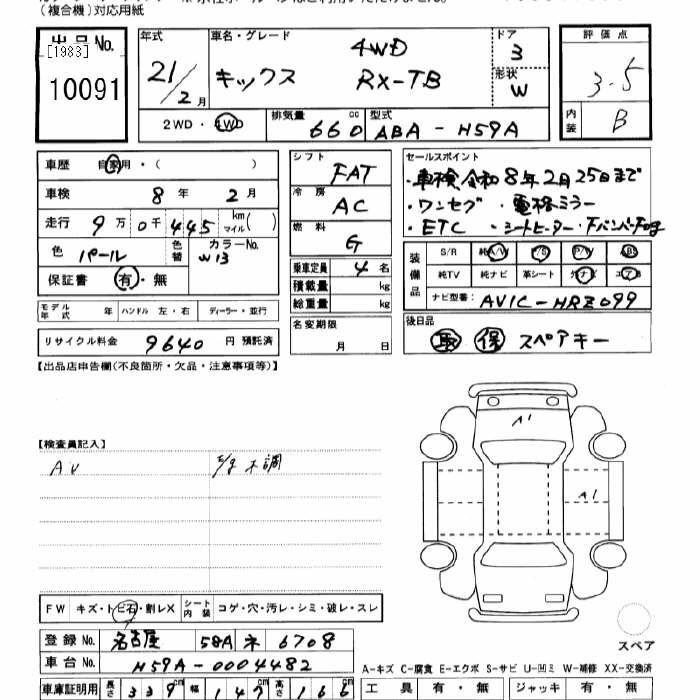 (複合機)対応用紙
出品No. [1983] 10091
年式 21/2月
車名・グレード 4WD キックス RX-TB
ドア 3
形状 W
評価点 3.5
内装 B
2WD・4WD
排気量 660 cc
型式 ABA-H59A
車歴 自家用・( )
車検 8年 2月
走行 9万0千445 km マイル( )
色 パール 色替 カラーNo. W13
保証書 有・無
モデル年式 年 ハンドル 左・右 ディーラー・並行
リサイクル料金 9640 円 預託済
シフト FAT
冷房 AC
燃料 G
乗車定員 4名
積載量 kg
総重量 kg
名変期限 月 日
セールスポイント
・車検令和8年2月25日まで
・ワンセグ ・電格ミラー
・ETC ・シートヒーター
装備品 S/R 純A/W P/S P/W ABS
純TV 純ナビ 革シート 社ナビ エアB
ナビ型番: AVIC-HRZ099
後日品
取 保 スペアキー
【出品店申告欄(不良箇所・欠品・注意事項等)】
【検査員記入】
AU E/g不調
A1
A1
FW キズ・トビ石・割レX シート内装 コゲ・穴・汚レ・シミ・破レ・スレ
スペア
登録No. 名古屋 58A ネ 6708
車台No. H59A-0004482
A-キズ C-腐食 E-エクボ S-サビ U-凹ミ W-補修 XX-交換済
車庫証明用 長さ 339cm 幅 147 高さ
工具 有・無 ジャッキ 有・無